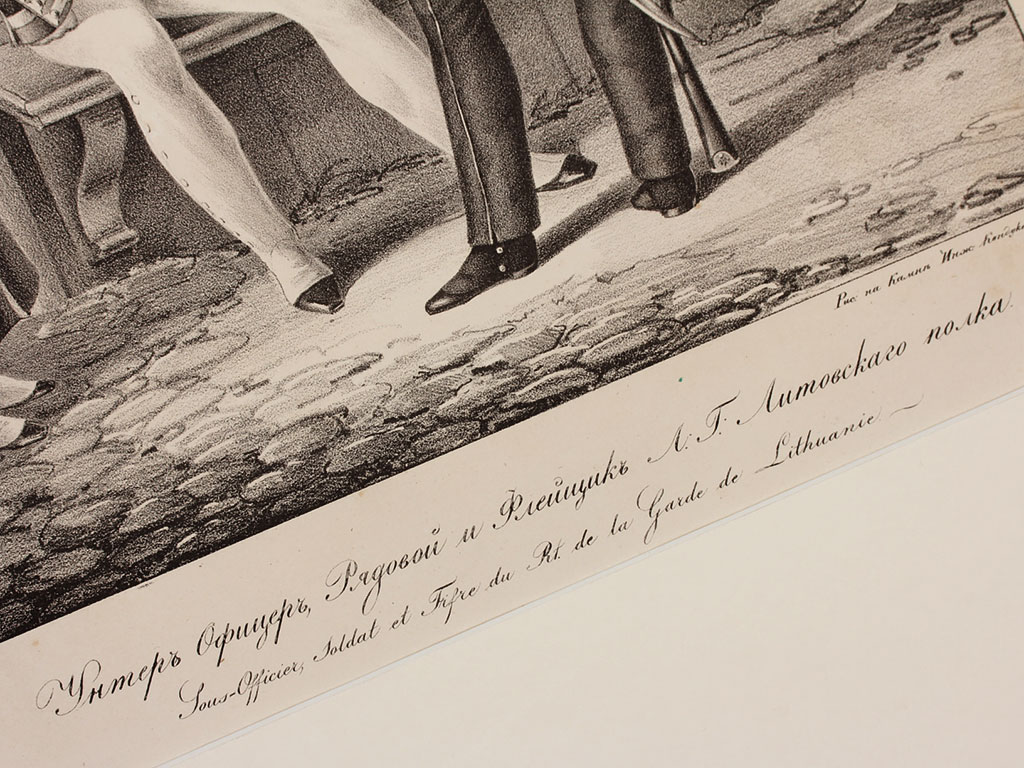 Рис. на камнѣ Инж.
Унтеръ Офицеръ, Рядовой и Флейщикъ Л. Г. Литовскаго полка
Sous-Officier, Soldat et Fifre du Rt. de la Garde de Lithuanie